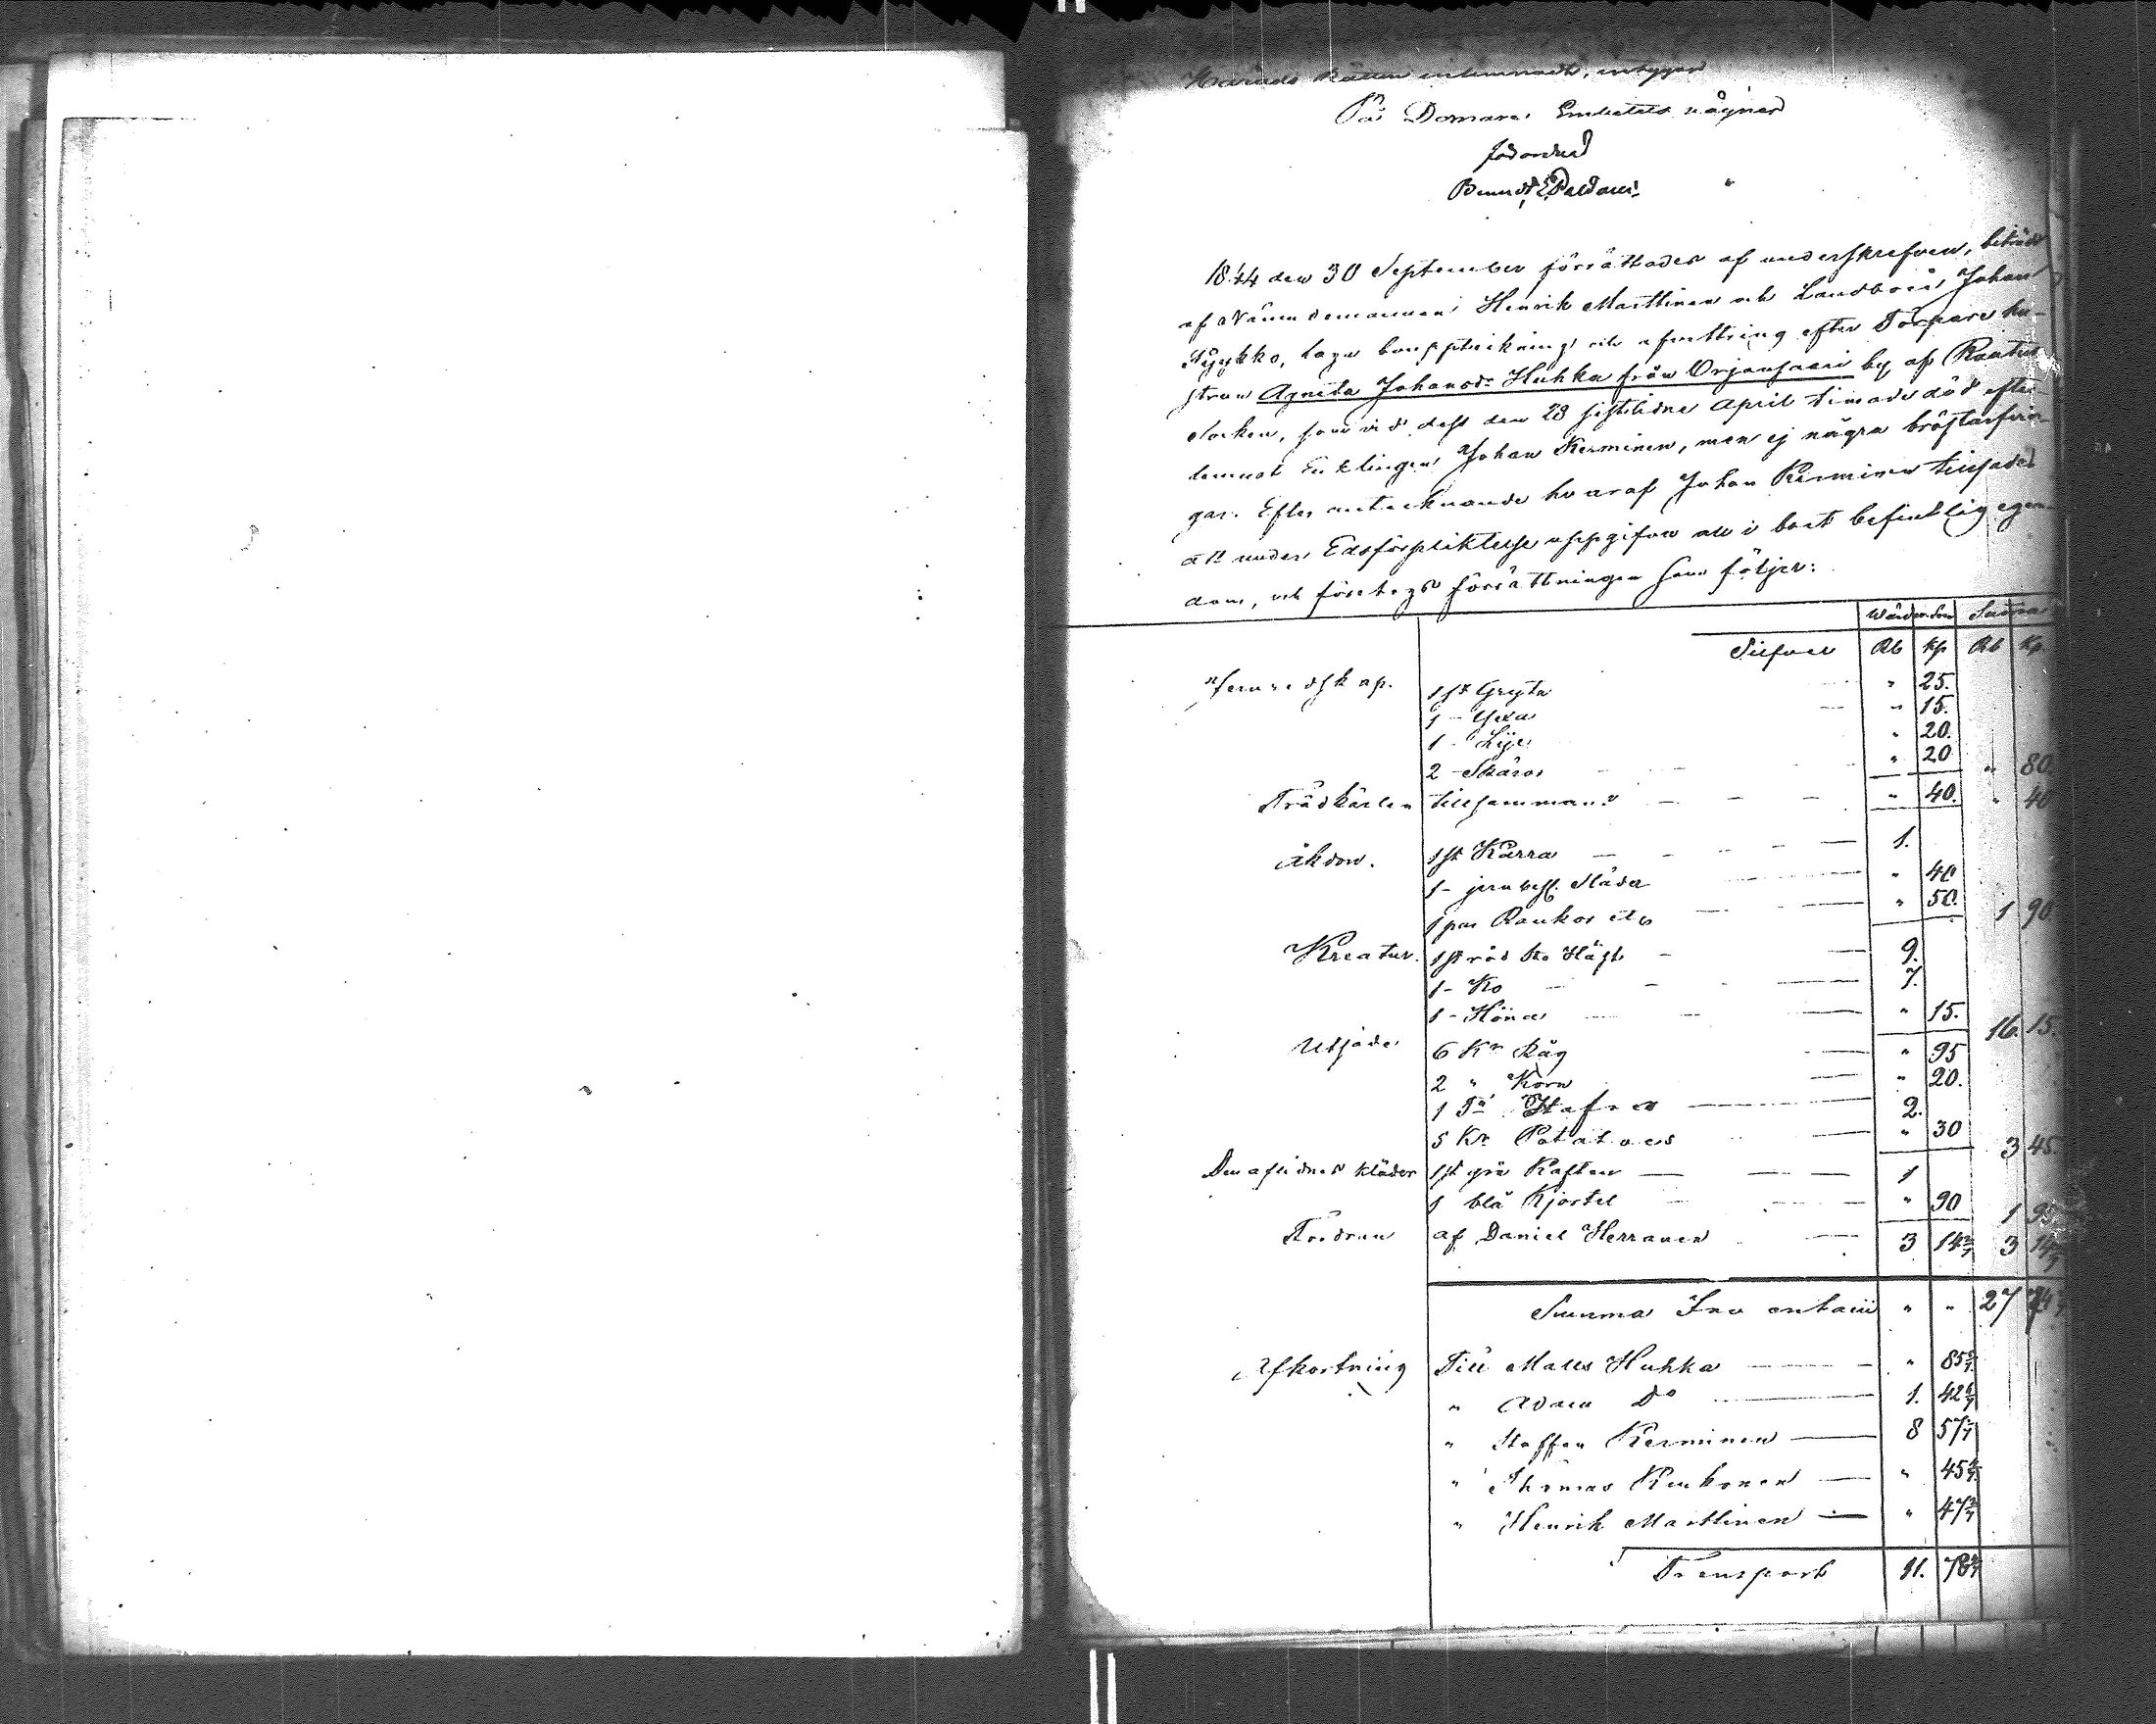 Härads Rätten inlemnadt, intygar
På Domare Embetets vägnar
1844 den 30 September förrättades af underskrefven, biträdd
af Nämndemannen Henrik Marttinen och Landboen Johan
laga bouppteckning och afvittring efter Torpare hu-
strun Agneta Johansdr Huhka från Orjansaari by af Rautus
Socken, som vid dess den 23 sistlidne April timade död efter-
lemnat Enklingen Johan Kerminen, men ej några bröstarfvin-
gar. Efter antecknande hvaraf Johan Kerminen tillsades
att under Edsförpliktelse uppgifva all i boet befintlig egen-
dom, och företogs förrättningen som följer:
Värden Summa
Silfver Rb Kp Rb Kp.
Jernredskap. 1 st Gryta " 25.
1 - Yxa " 15.
1 - Lije " 20.
2 - Skäror " 20 " 80.
Trädkärlen tillsammans " 40. " 40
Åkdon. 1 st Kärra 1.
1 - jernbesl. Släder " 40
1 par Rankor etc " 50. 1 90
Kreatur. 1 st röd Häst 9.
1 - Ko 7.
1 - Höna " 15. 16. 15.
Utsäde 6 Kr Råg " 95
2 " Korn " 20.
1 Ta Hafra 2.
5 Kr Potatoes " 30 3 45.
Den aflidnes kläder 1 st grå Kaftan 1
1 blå Kjortel " 90 1 90
Fordran af Daniel Herranen 3 14 2/7 3 14 2/7
Summa Inventarii " " 27 74 2/7
Afkortning Till Matts Huhka " 85 5/7
" Adam Do 1. 42 6/7
" Staffan Kerminen 8 57 1/7
" Thomas Kukonen " 45 5/7
" Henrik Marttinen " 47 2/7
Transport 11. 78